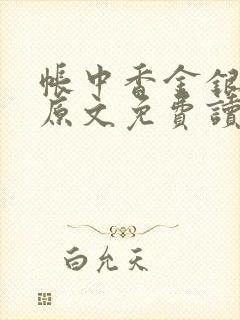 帳中香金銀
原文免費讀
白允天